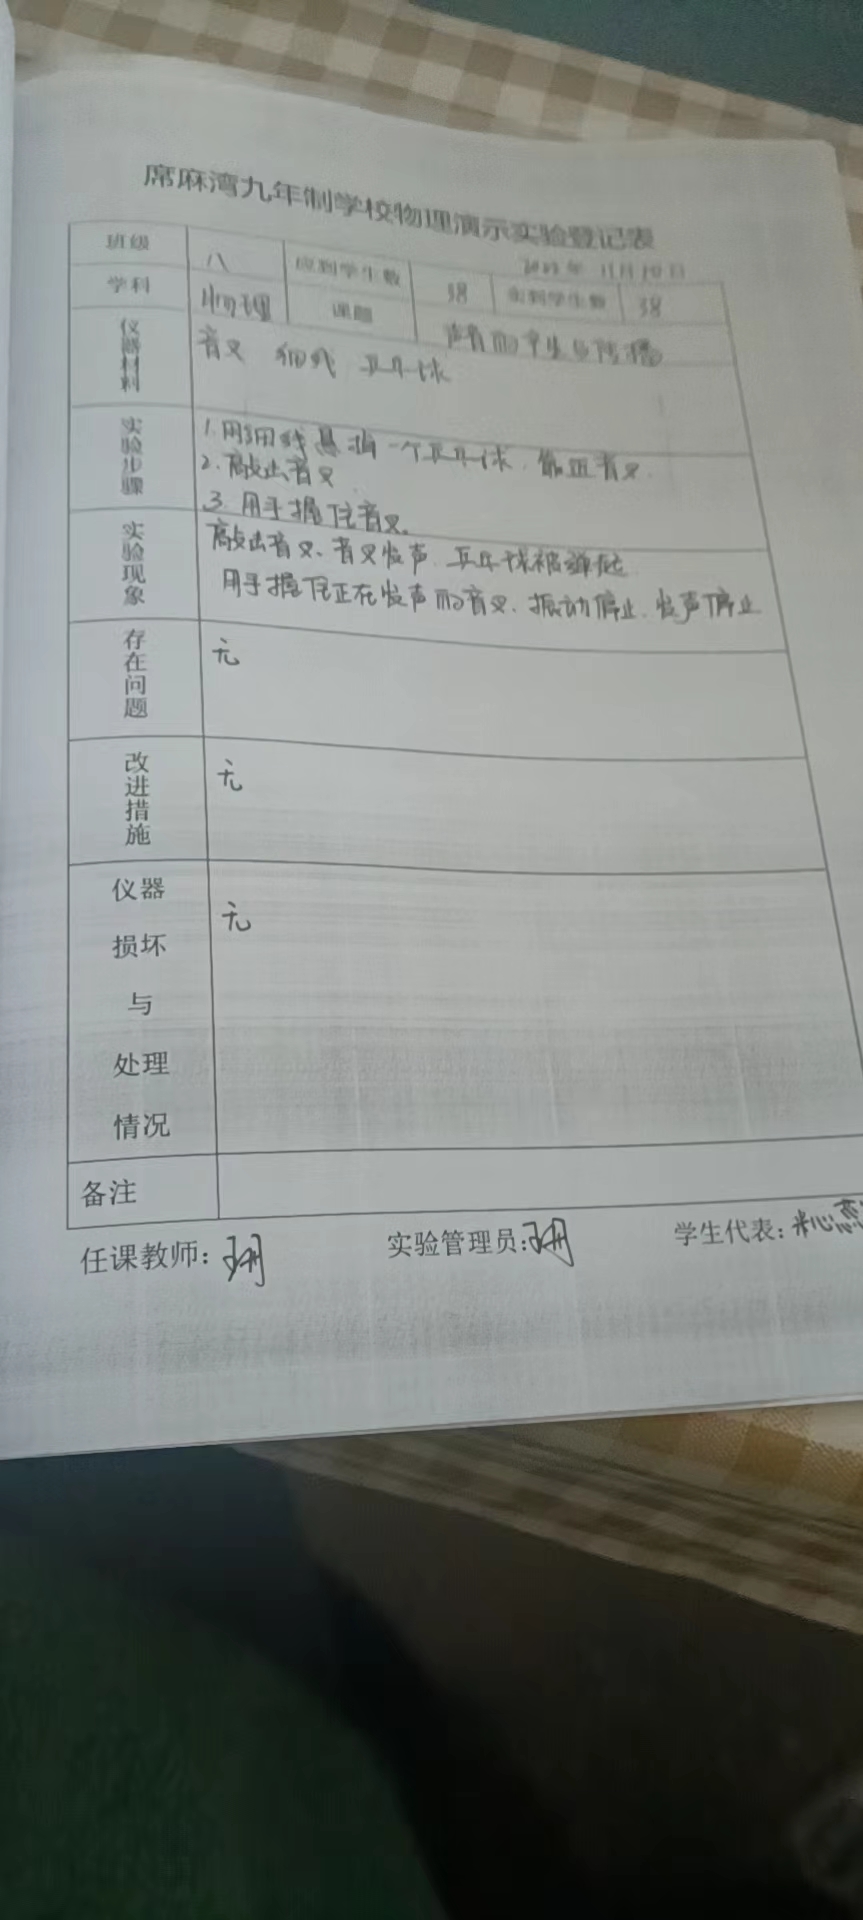 席麻湾九年制学校物理演示实验登记表
年 11月10日
班级 八 应到学生数 38 实到学生数 38
学科 物理 课题 声音的产生与传播
仪器材料 音叉 细线 乒乓球
实验步骤 1.用细线悬挂一个乒乓球,靠近音叉.
2.敲击音叉
3.用手握住音叉.
实验现象 敲击音叉、音叉发声.乒乓球被弹起
用手握住正在发声的音叉.振动停止.发声停止
存在问题 无
改进措施 无
仪器损坏与处理情况 无
备注
任课教师: 实验管理员: 学生代表: